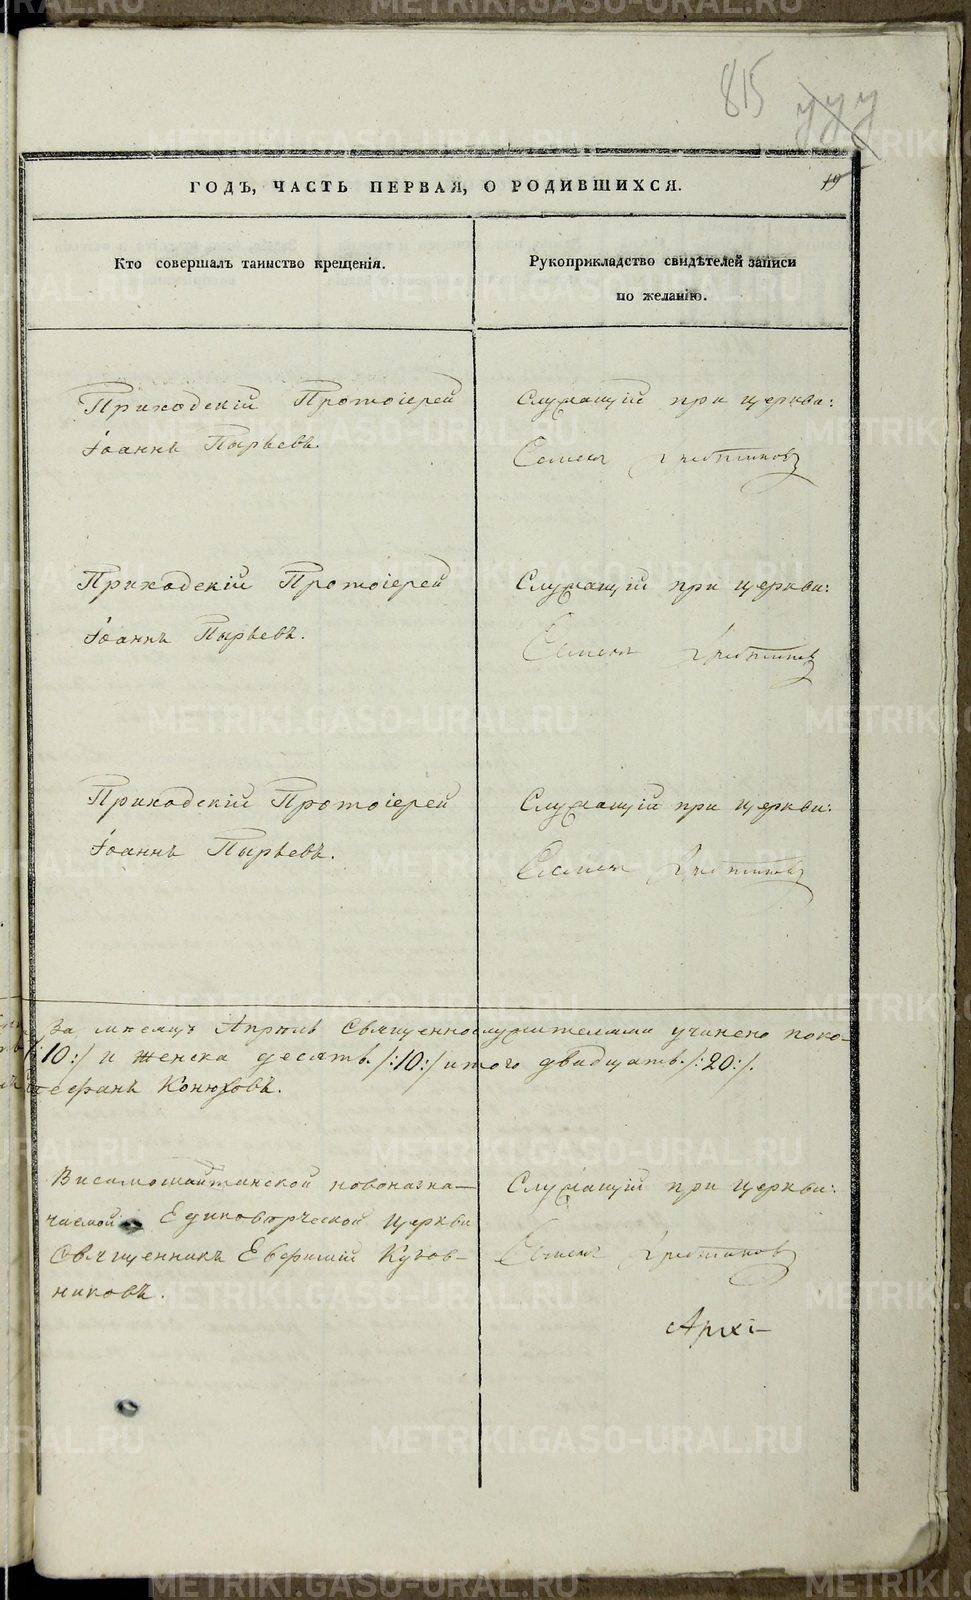 815
19
ГОДЪ, ЧАСТЬ ПЕРВАЯ, О РОДИВШИХСЯ.
Кто совершалъ таинство крещенія.
Рукоприкладство свидѣтелей записи
по желанію.
Приходскій Протоіерей
Іоаннъ Пырьевъ.
Служащій при церкви:
Семенъ
Приходскій Протоіерей
Іоаннъ Пырьевъ.
Служащій при церкви:
Семенъ
Приходскій Протоіерей
Іоаннъ Пырьевъ.
Служащій при церкви:
Семенъ
За мѣсяцъ Апрѣль Священнослужителями учинено
/:10:/ и женска десять /:10:/ итого двадцать /:20:/.
Стефанъ Конюховъ.
Висимошайтанской новоназна-
чаемой Единоверческой Церкви
Священникъ Евфимій
никовъ.
Служащій при церкви:
Семенъ
Архі-
METRIKI.GASO-URAL.RU